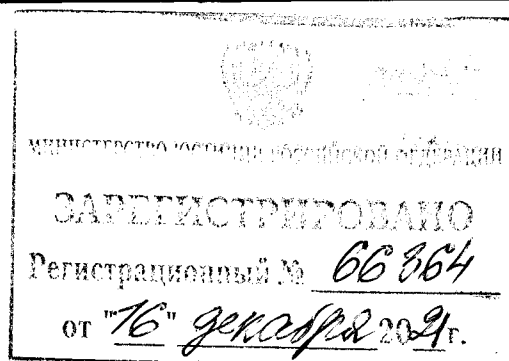 МИНИСТЕРСТВО ЮСТИЦИИ РОССИЙСКОЙ ФЕДЕРАЦИИ
ЗАРЕГИСТРИРОВАНО
Регистрационный № 66864
от "16" декабря 2021г.